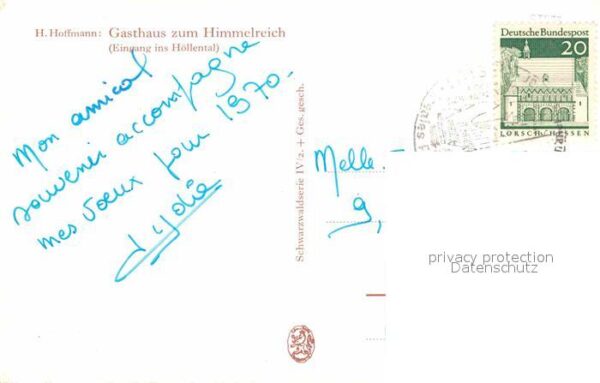 H. Hoffmann: Gasthaus zum Himmelreich
(Eingang ins Höllental)
Mon amical
souvenir accompagne
mes voeux pour 1970.-
Schwarzwaldserie IV/2. + Ges. gesch.
Melle.-
9,
Deutsche Bundespost
20
LORSCH/HESSEN
privacy protection
Datenschutz